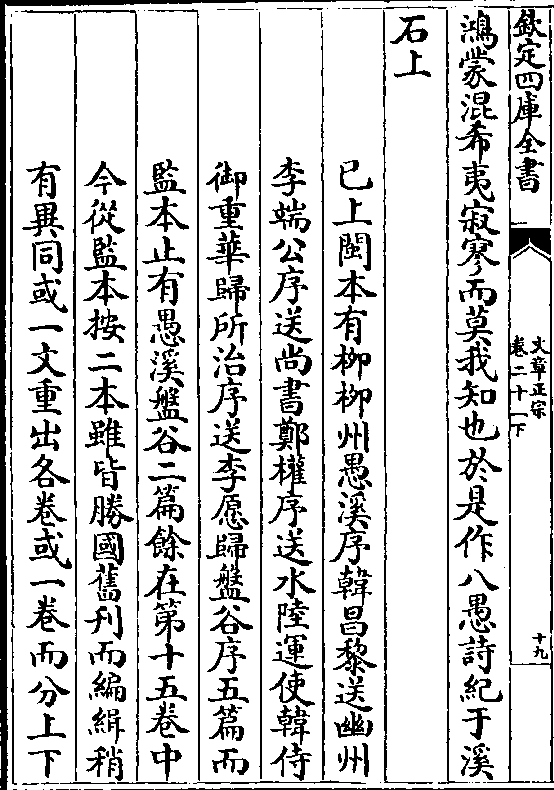 欽定四庫全書
文章正宗
卷二十一下
十九
鴻蒙混希夷寂寥而莫我知也於是作八愚詩紀于溪
石上
已上閩本有柳柳州愚溪序韓昌黎送幽州
李端公序送尚書鄭權序送水陸運使韓侍
御重華歸所治序送李愿歸盤谷序五篇而
監本止有愚溪盤谷二篇餘在第十五卷中
今從監本按二本雖皆勝國舊刋而編緝稍
有異同或一文重出各卷或一卷而分上下